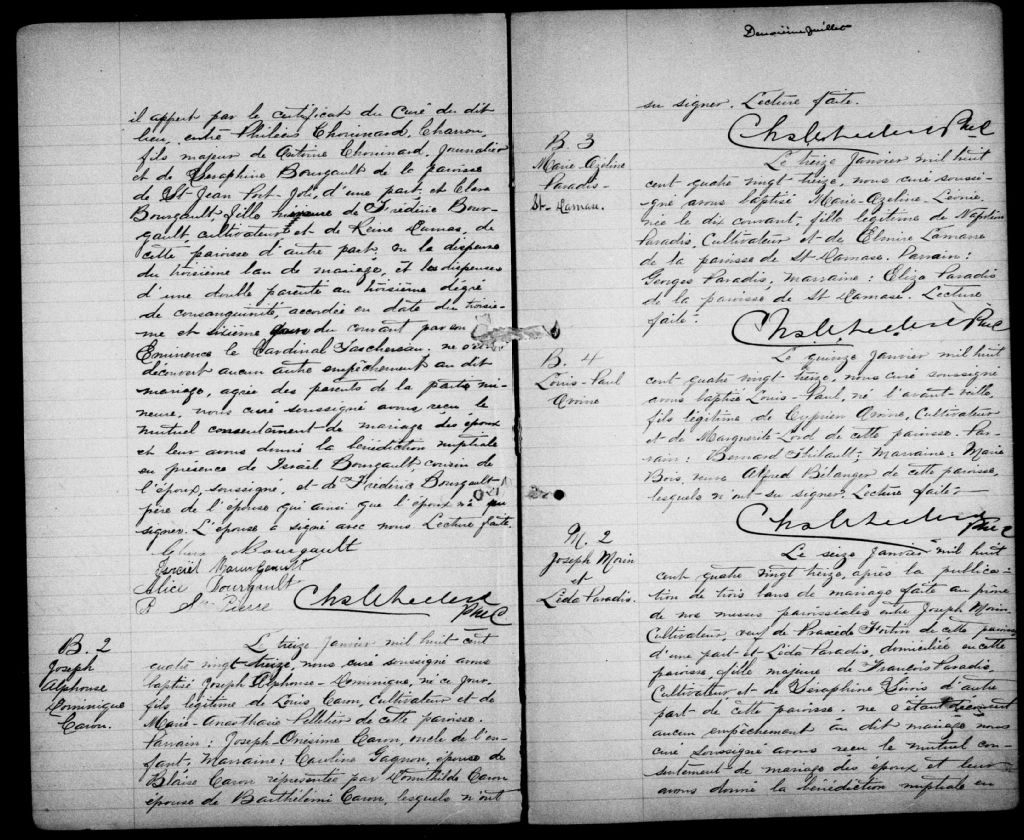 il appert par le certificat du Curé du dit
lieu, entre Philéas Chouinard, Charron,
fils majeur de Antoine Chouinard, Journalier
et de Séraphine Bourgault de la paroisse
de St-Jean Port-Joli, d'une part, et Clara
Bourgault, fille mineure de Frédéric Bour-
gault, cultivateur et de Reine Dumas, de
cette paroisse d'autre part; vu la dispense
du troisième ban de mariage, et les dispenses
d'une double parenté au troisième degré
de consanguinité, accordée en date du troisiè-
me et sixième jour du courant par son
Eminence le Cardinal Taschereau. ne
découvert aucun autre empêchement au dit
mariage, agrée des parents de la partie mi-
neure, nous curé soussigné avons reçu le
mutuel consentement de mariage des époux
et leur avons donné la bénédiction nuptiale
en presence de Israël Bourgault cousin de
l'époux, soussigné, et de Frédéric Bourgault
père de l'épouse qui ainsi que l'époux n'a pu
signer. L'épouse a signé avec nous Lecture faite.
Bourgault
Bourgault
Alice Bourgault
Pierre
Ptre C
B. 2
Joseph
Alphonse
Dominique
Caron.
L treize Janvier mil huit cent
quatre vingt treize, nous curé soussigné avons
baptisé Joseph Alphonse-Dominique, né ce jour,
fils légitime de Louis Caron, Cultivateur et de
Marie-Anasthasie Pelletier de cette paroisse.
Parrain: Joseph-Onésime Caron, oncle de l'en-
fant, Marraine: Caroline Gagnon, épouse de
Blaise Caron représentée par Domithilde Caron
épouse de Barthélémi Caron, lesquels n'ont
Deuxième feuillet
su signer. Lecture faite.
Ptre C
B. 3
Marie-Ozéline
Paradis-
St-Damase.
Le treize Janvier mil huit
cent quatre vingt-treize, nous curé soussi-
gné avons baptisé Marie-Ozéline-Léonie,
née le dix courant, fille légitime de Napoléon
Paradis, Cultivateur et de Elmire Lamarre
de la paroisse de St-Damase. Parrain:
Georges Paradis, Marraine: Eliza Paradis
de la paroisse de St Damase. Lecture
faite.
Ptre C
B. 4
Louis-Paul
Avoine
Le quinze Janvier mil huit
cent quatre vingt-treize, nous curé soussigné
avons baptisé Louis-Paul, né l'avant-veille,
fils légitime de Cyprien Avoine, Cultivateur
et de Marguerite-Lord de cette paroisse. Par-
rain: Bernard Thibault; Marraine: Marie
Bois, veuve Alfred Bélanger de cette paroisse,
lesquels n'ont su signer. Lecture faite.
Ptre C
M. 2
Joseph Morin
et
Léda Paradis.
Le seize Janvier mil huit
cent quatre vingt treize, après la publica-
tion de trois bans de mariage faite au prône
de nos messes paroissiales entre Joseph Morin
Cultivateur, veuf de Praxède Fortin de cette paroisse
d'une part et Léda Paradis, domiciliée en cette
paroisse, fille majeure de François Paradis,
Cultivateur et de Séraphine Sirois d'autre
part de cette paroisse. ne s'étant découvert
aucun empêchement au dit mariage nous
curé soussigné avons reçu le mutuel con-
sentement de mariage des époux et leur
avons donné la bénédiction nuptiale en